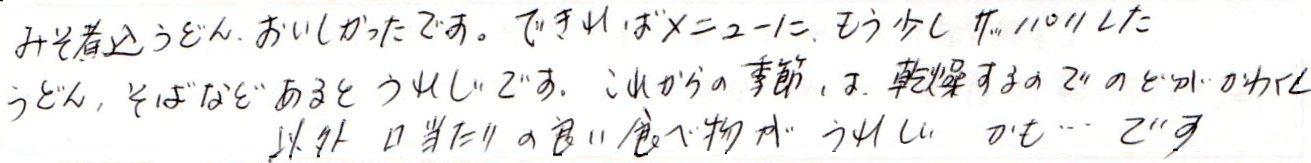 みそ煮込うどん、おいしかったです。できればメニューに、もう少しサッパリした
うどん、そばなどあるとうれしいです。これからの季節は、乾燥するのでのどがかわくし
以外 口当たりの良い食べ物が うれしい かも… です